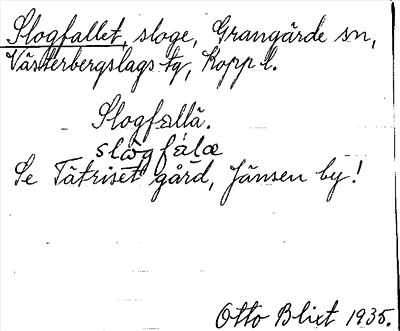 Slogfallet, sloge, Grangärde sn,
Västerbergslags tg, Kopp l.
Slogfällä.
slωgfälæ
Se Tätriset gård, Jänsen by!
Otto Blixt 1935.